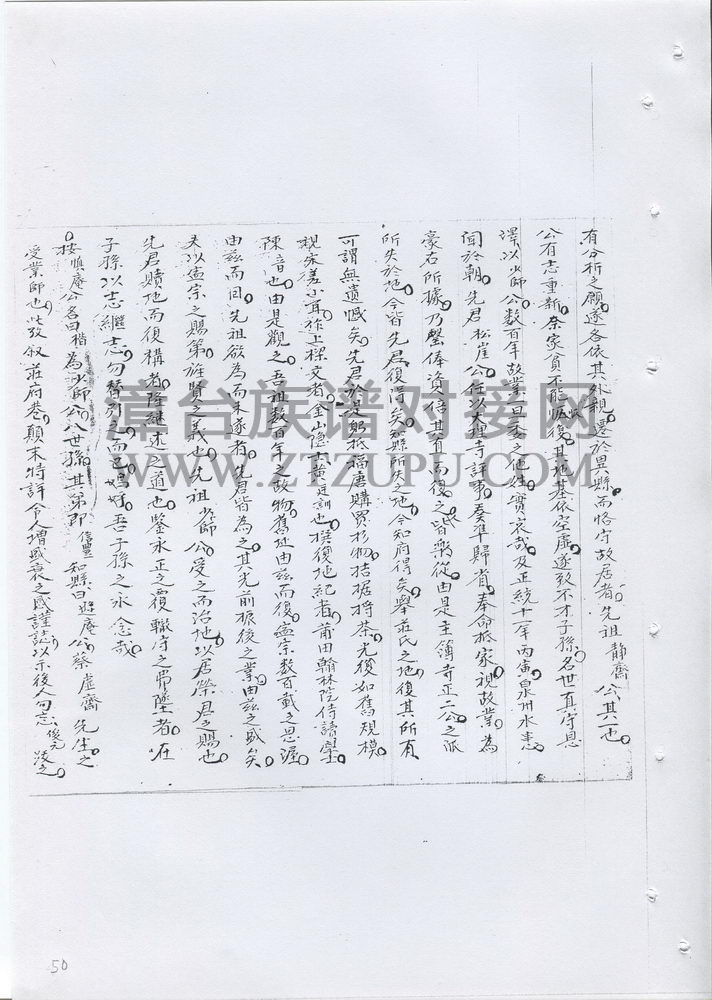 有分析之願遂各依其外親遷於異縣而恪守故居者先祖靜齋公其一也
公有志重新奈家貧不能恢復其地基依空虛遂致不才子孫名世真守恩
澤以少師公數百年故業一旦委之他姓實哀哉及正統十一年丙寅泉州水患
聞於朝先君松崖公任以大理寺評事奏準歸省奉命抵家視故業為
豪右所據乃罄俸資倍其直而復之皆樂從由是主簿寺正二公之派
所失於地今皆先君復得矣知縣所失之地今知府得矣舉莊氏之地復其所有
可謂無遺憾矣先君於是躬抵福唐購買杉物拮据捋荼光復如舊規模
視宋差小耳祚上樑文者金山隱士黃廷訓也撰復地紀者莆田翰林院侍讀學士
陳音也由是觀之吾祖數百年之故物舊址由茲而復孟宗數百載之恩渥
由茲而回先祖欲為而未遂者先君皆為之其光前振後之業由茲之盛矣
夫以孟宗之賜第旌賢之義也先祖少師公受之而治地以居榮君之賜也
先君贖地而復構者隆繼述之道也鑒永正之覆轍守之帶墜者在
子孫以志繼志勿替引之而已嗚呼吾子孫之永念哉
按慎庵公名曰楷為少師公八世孫其弟即 知縣曰 庵公蔡虛齋先生之
受業師也此致敘莊府巷顛末特詳令人增盛衰之感謹誌以示後人勿忘
漳台族谱对接网
WWW.ZTZUPU.COM
50